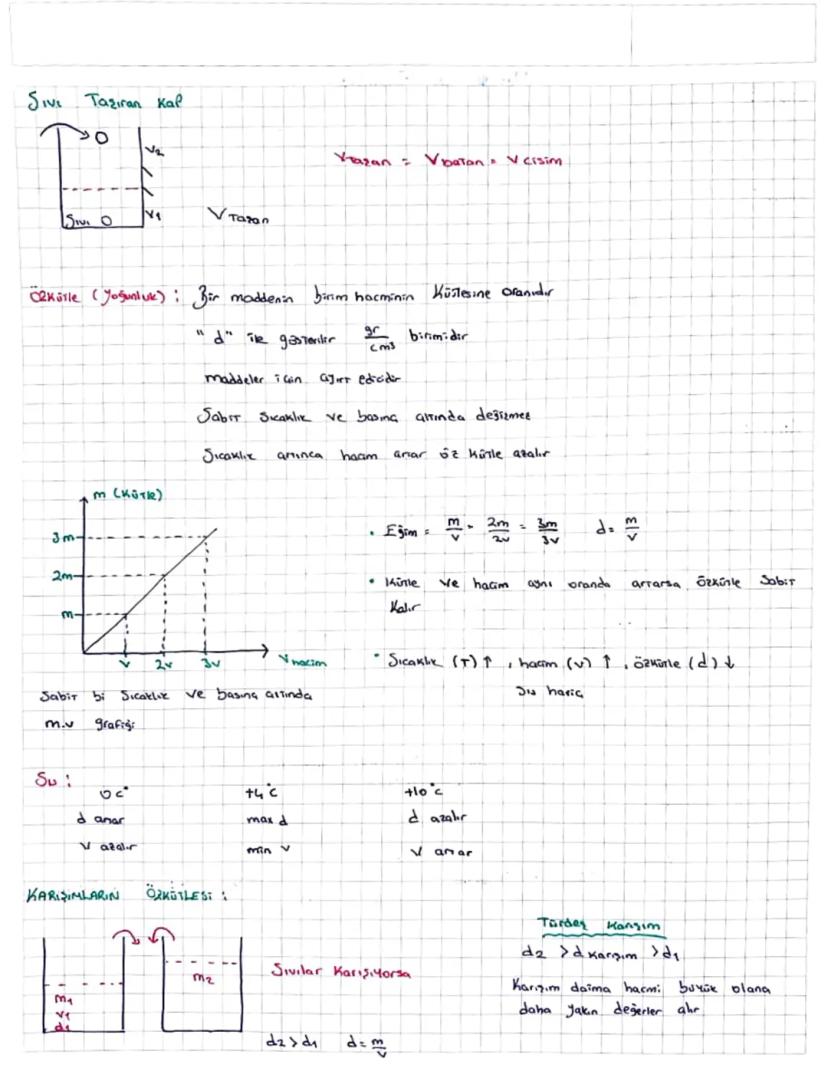 Sıvı Taşıran Kap
V2
Sıvı
V1
V Taşan
Vtaşan = Vbatan = Vcisim
Özkütle (Yoğunluk) : Bir maddenin birim hacminin kütlesine oranıdır
"d" ile gösterilir gr/cm3 birimidir
maddeler için ayırt edicidir
Sabit sıcaklık ve basınç altında değişmez
Sıcaklık artınca hacim artar öz kütle azalır
m (Kütle)
3m
2m
m
V 2v 3v V hacim
Sabit bi Sıcaklık ve basınç altında
m.v grafiği
• Eğim = m/v = 2m/2v = 3m/3v d = m/v
• Kütle ve hacim aynı oranda artarsa özkütle Sabit
Kalır
• Sıcaklık (T) ↑ , hacim (v) ↑ , özkütle (d) ↓
Su hariç
Su :
0 c° +4°c +10°c
d artar max d d azalır
V azalır min v V artar
KARIŞIMLARIN ÖZKÜTLESİ :
m1
v1
d1
m2
Sıvılar Karışıyorsa
d2 > d1 d = m/v
Türdeş Karışım
d2 > d karışım > d1
Karışım daima hacmi büyük olana
daha yakın değerler alır